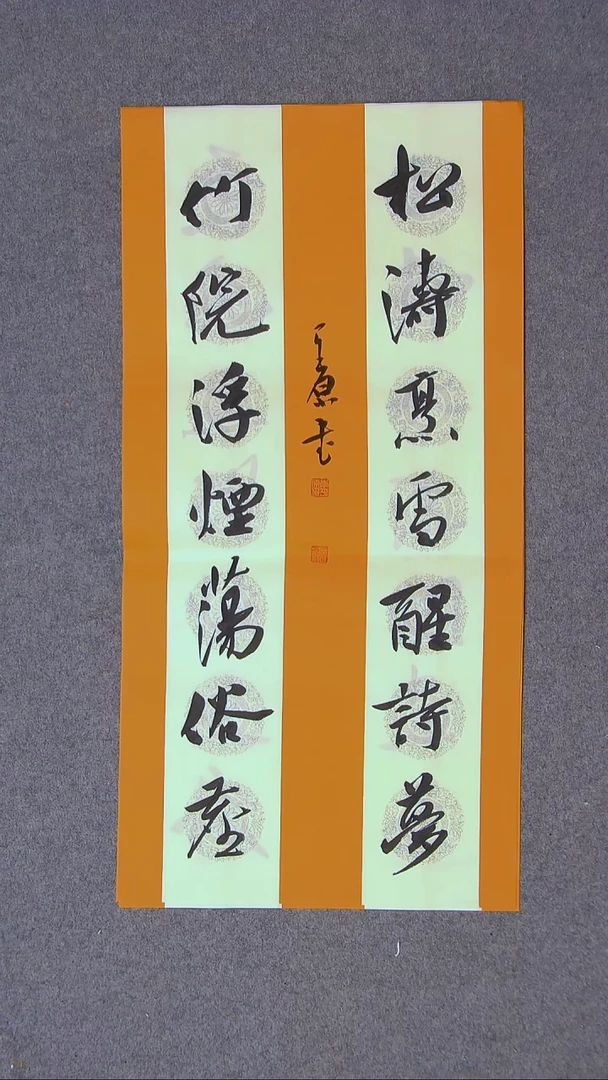 松濤烹雪醒詩夢
竹院浮煙蕩俗塵